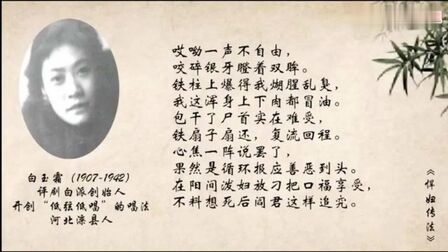 哎呦一声不自由，
咬碎银牙瞪着双眸。
铁柱上爆得我煳腥乱臭，
我这浑身上下肉都冒油。
包干了尸首实在难受，
铁扇子扇还，复流回程。
心焦一阵说罢了，
果然是循环报应善恶到头。
在阳间泼妇放刁把口福享受，
不料想死后阎君这样追究。
《悍妇传法》
白玉霜（1907-1942）
评剧白派创始人
开创“低弦低唱”的唱法
河北滦县人